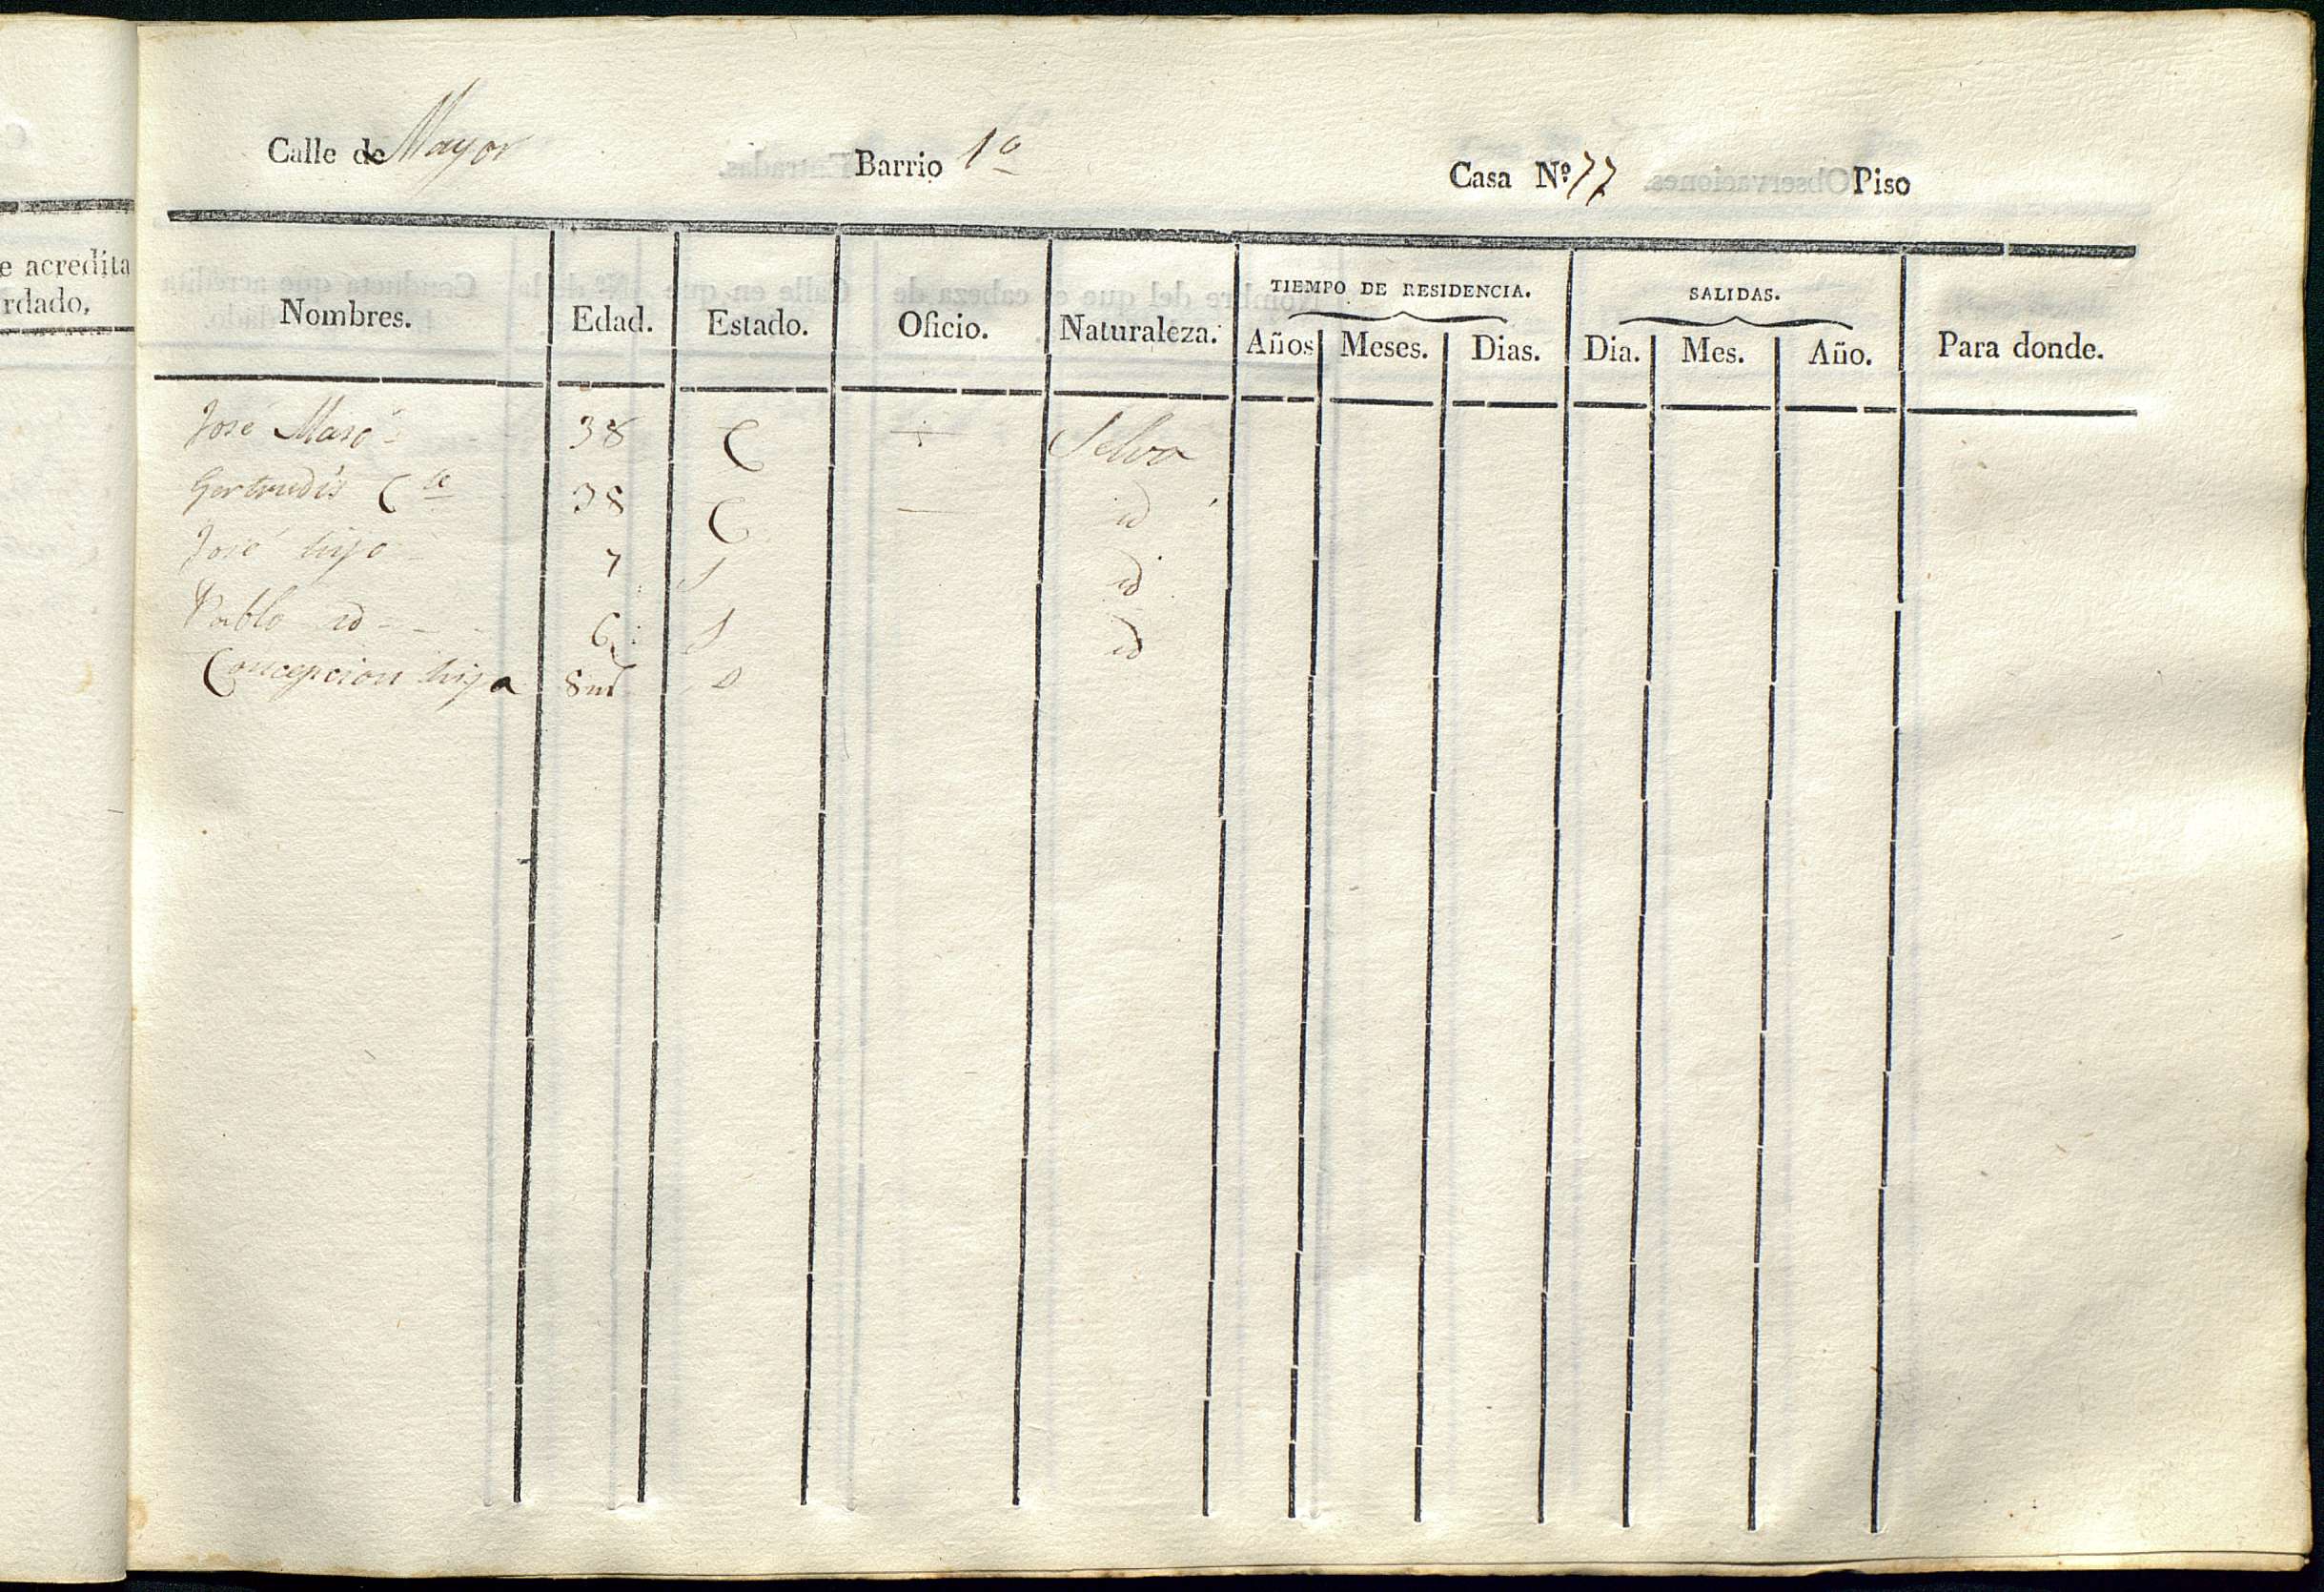 Calle de Mayor Barrio 1º Casa Nº 77 Piso
e acredita
rdado,
TIEMPO DE RESIDENCIA. SALIDAS.
Nombres. Edad. Estado. Oficio. Naturaleza. Años Meses. Dias. Dia. Mes. Año. Para donde.
José Masó 38 C Selva
Gertrudis Cª 38 C — id
José hijo 7 S id
Pablo id - - - 6 S id
Concepcion hija 8 ms S